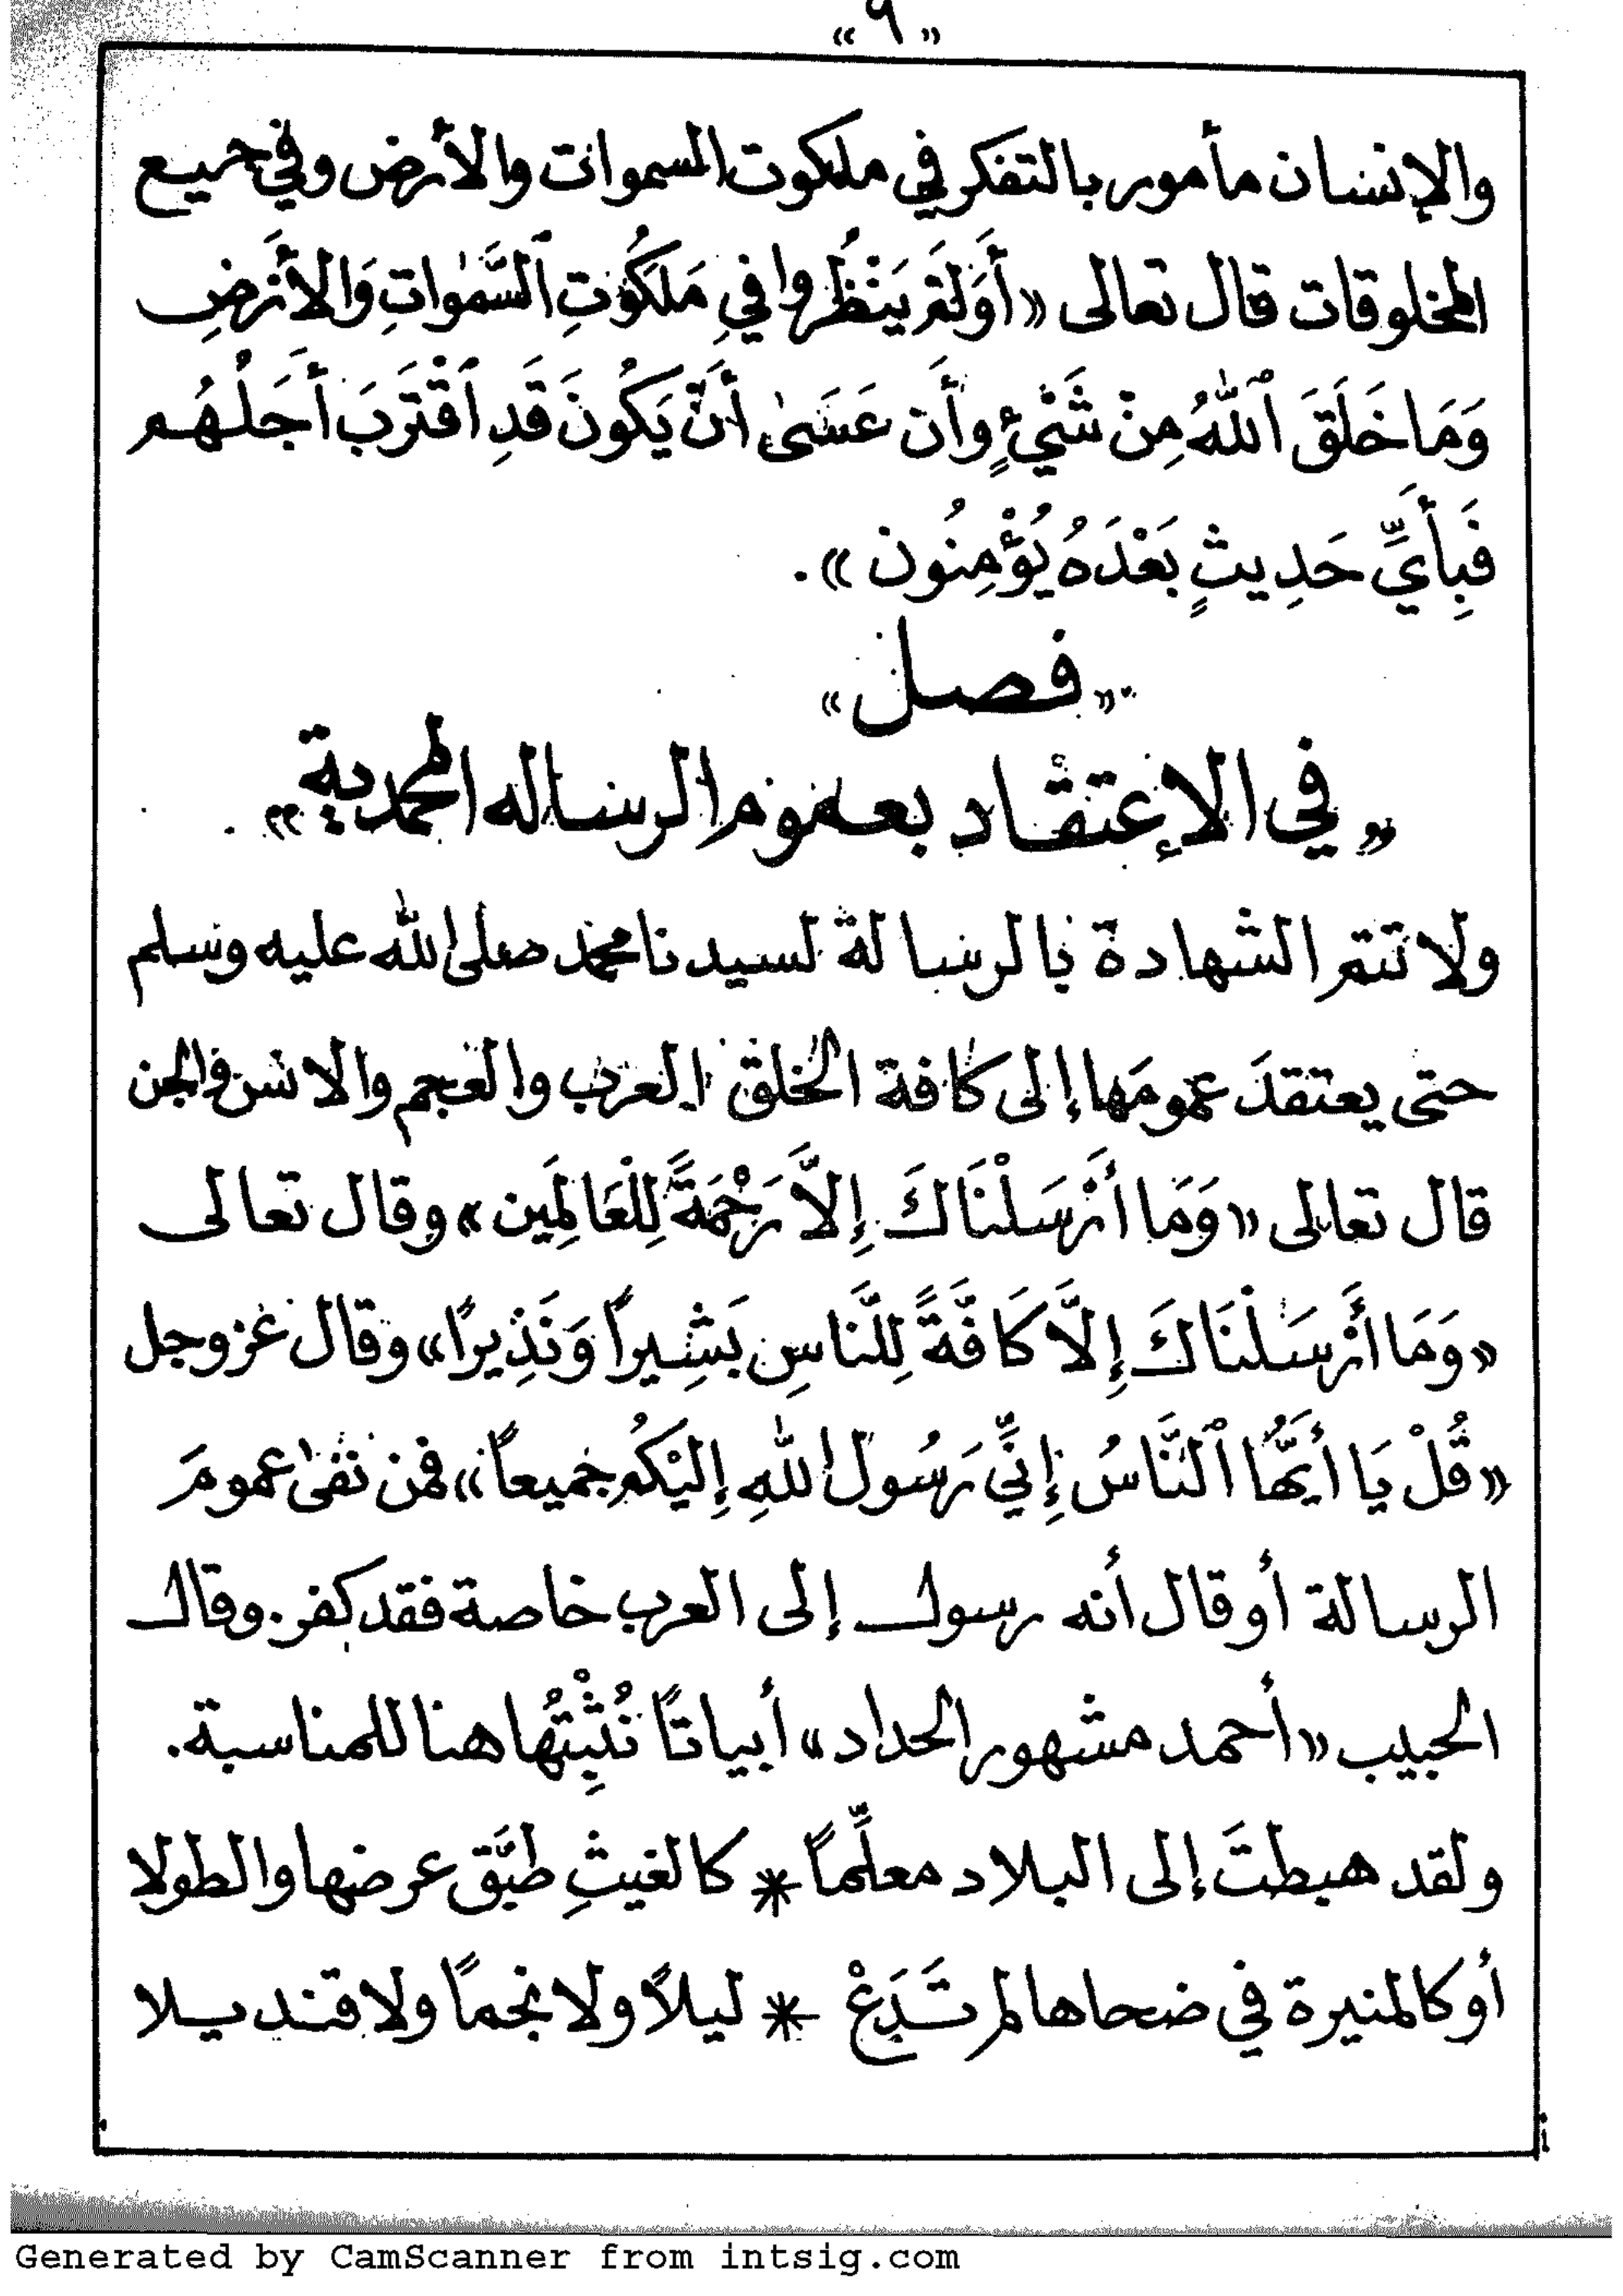 «٩»
والإنسان مأمور بالتفكر في ملكوت السموات والأرض وفي جميع
المخلوقات قال تعالى «أَوَلَمْ يَنْظُرُوا فِي مَلَكُوتِ ٱلسَّمٰوَاتِ وَالأَرْضِ
وَمَا خَلَقَ ٱللهُ مِنْ شَيْءٍ وأَن عَسَىٰ أَنْ يَكُونَ قَدِ ٱقْتَرَبَ أَجَلُهُم
فَبِأَيِّ حَدِيثٍ بَعْدَهُ يُؤْمِنُون».
«فصل»
«في الإعتقاد بعموم الرساله المحمدية»
ولا تتم الشهادة بالرسالة لسيدنا محمد صلى الله عليه وسلم
حتى يعتقدَ عمومَها إلى كافة الخلق العرب والعجم والانس والجن
قال تعالى «وَمَا أَرْسَلْنَاكَ إِلاَّ رَحْمَةً لِلْعَالَمِين» وقال تعالى
«وَمَا أَرْسَلْنَاكَ إِلاَّ كَافَّةً لِلنَّاسِ بَشِيراً وَنَذِيرًا» وقال عزوجل
«قُلْ يَا أَيُّهَا ٱلنَّاسُ إِنِّي رَسُول اللهِ إِلَيْكُم جَمِيعاً» فمن نفى عمومَ
الرسالة أو قال أنه رسول إلى العرب خاصة فقد كفر. وقال
الحبيب «أحمد مشهور الحداد» أبياتًا نُثْبِتُها هنا للمناسبة.
ولقد هبطتَ إلى البلاد معلِّماً * كالغيثِ طبَّق عرضها والطولا
أو كالمنيرة في ضحاها لم تَدَعْ * ليلاً ولا نجماً ولا قنديلا
Generated by CamScanner from intsig.com